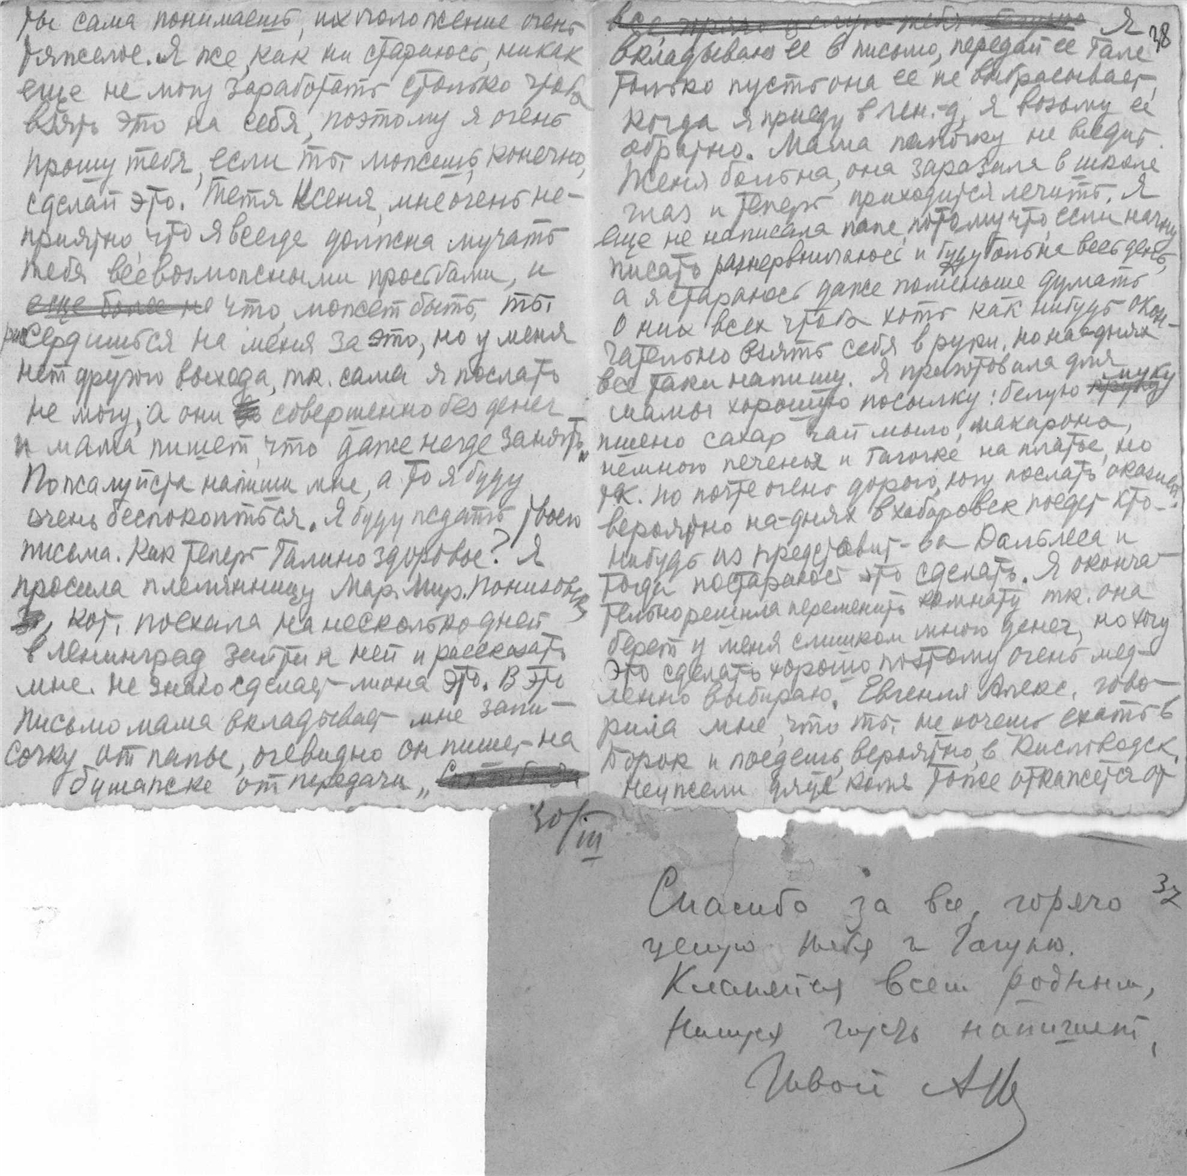 ты сама понимаешь, их положение очень
тяжелое. Я же, как ни стараюсь, никак
еще не могу заработать столько чтоб
взять это на себя, поэтому я очень
прошу тебя, если ты можешь, конечно,
сделай это. Тетя Ксеня, мне очень не-
приятно, что я всегда должна мучать
тебя всевозможными просьбами, и
еще более не что может быть, ты
рассердишься на меня за это, но у меня
нет другого выхода, т.к. сама я послать
не могу, а они совершенно без денег
и мама пишет, что даже негде занять.
Пожалуйста напиши мне, а то я буду
очень беспокоиться. Я буду ждать твоего
письма. Как теперь Галино здоровье? Я
просила племянницу Мар. Мир.
кот. поехала на несколько дней
в Ленинград зайти к ней и рассказать
мне. Не знаю сделает-ли она это. В это
письмо мама вкладывает мне запи-
сочку от папы, очевидно он пишет на
бумажке от передачи,
38
все целую тебя Я
вкладываю ее в письмо, передай ее Гале
только пусть она ее не выбрасывает,
когда я приеду в Лен-д, я возьму ее
обратно. Мама папочку не видит.
Женя больна, она заразила в школе
глаз и теперь приходится лечить. Я
еще не написала папе, потому что если начну
писать разнервничаюсь и буду больна весь день,
а я стараюсь даже поменьше думать
о них всех чтоб хоть как нибудь окон-
чательно взять себя в руки, но на-днях
все таки напишу. Я приготовила для
мамы хорошую посылку: белую муку
пшено сахар чай мыло, макароны,
немного печенья и Тасочке на платье, но
т.к. по почте очень дорого, хочу послать оказией.
вероятно на-днях в Хабаровск поедет кто-
нибудь из представит-ва Дальлеса и
тогда постараюсь это сделать. Я оконча-
тельно решила переменить комнату т.к. она
берет у меня слишком много денег, но хочу
это сделать хорошо поэтому очень мед-
ленно выбираю. Евгения Алекс. гово-
рила мне, что ты не хочешь ехать в
Борок и поедешь вероятно, в Кисловодск,
неужели дядя Коля тоже откажется от
30/III
37
Спасибо за все, горячо
целую тебя и Гагулю.
Кланяйся всем родным,
напишет,
Твой